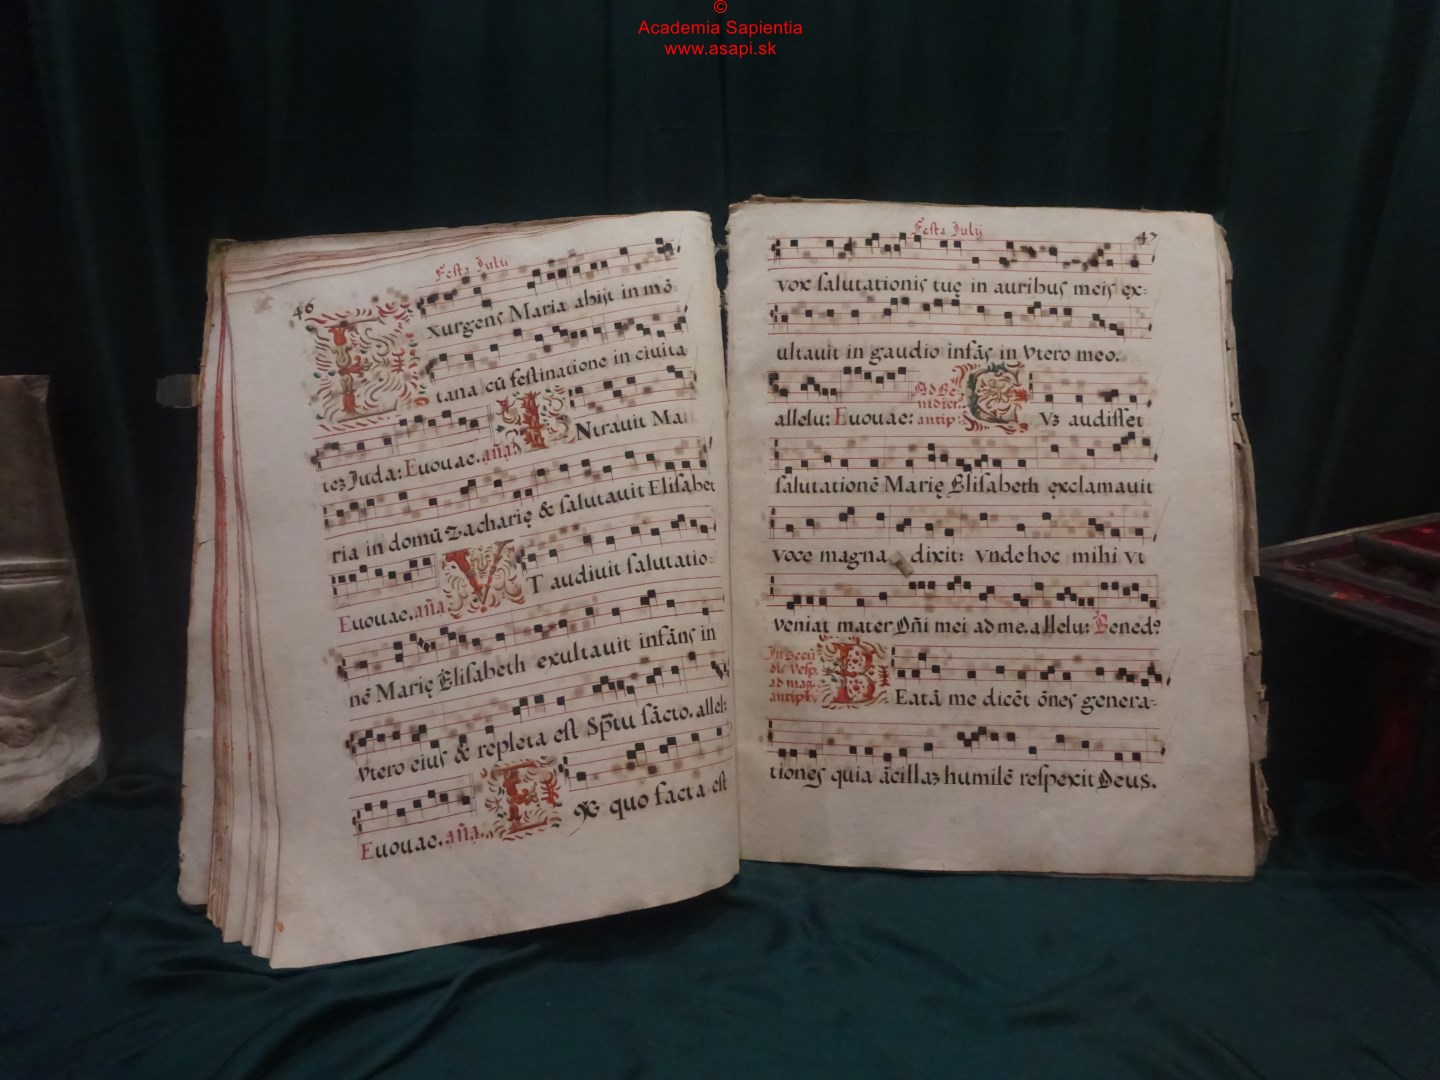 ©
Academia Sapientia
www.asapi.sk
46
Festa Julii
Exurgens Maria abijt in mō
tana cū festinatione in ciuita
tez Juda: Euouae. aña INtrauit Ma
ria in domū Zacharię & salutauit Elisabet
Euouae. aña VT audiuit salutatio-
nē Marię Elisabeth exultauit infãns in
vtero eius & repleta est Sp̄tu sācto. allel:
Euouae. aña. Ex quo facta est
Festa Julij
47
vox salutationis tuę in auribus meis ex=
ultauit in gaudio infãs in vtero meo.
allelu: Euouae: Ad Be
nidict.
antip: CVȝ audisset
salutationē Marię Elisabeth exclamauit
voce magna dixit: vnde hoc mihi vt
veniat mater Dñi mei ad me. allelu: Bened?
In secū
dis vesp.
ad mag.
antiph. BEatā me dicēt ōnes genera=
tiones quia ācillaȝ humilē respexit Deus.